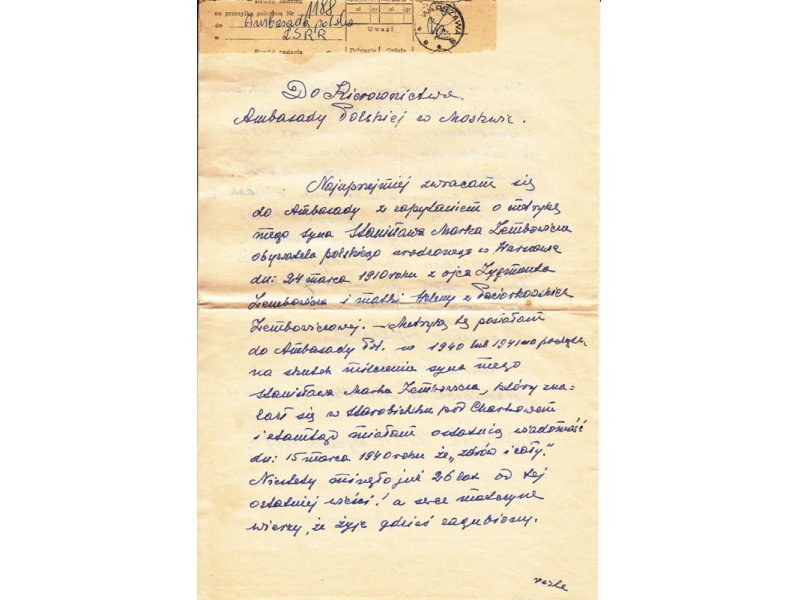 na przesyłkę poleconą Nr 1188
zł gr zł gr
do Ambasada polska
ZSRR
Uwagi
Pobranie Opłata
WARSZAWA
Do Kierownictwa
Ambasady Polskiej w Moskwie.
Najuprzejmiej zwracam się
do Ambasady z zapytaniem o metrykę
mego syna Stanisława Marka Zembowicza
obywatela polskiego urodzonego w Warszawie
dn: 24 marca 1910 roku z ojca Zygmunta
Zembowicza i matki Heleny z
Zembowiczowej. – Metrykę tę posłałam
do Ambasady Pol. w 1940 lub 1941 na początku
na skutek milczenia syna mego
Stanisława Marka Zembowicza, który zna-
lazł się w Starobielsku pod Charkowem
i stamtąd miałam ostatnią wiadomość
dn: 15 marca 1940 roku że „zdrów i cały."
Niestety minęło już 26 lat od tej
ostatniej wieści! a serce matczyne
wierzy, że żyje gdzieś zagubiony.